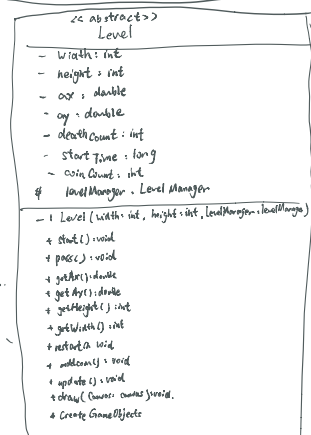 << abstract>>
Level
- width : int
- height : int
- ax : double
- ay : double
- deathCount : int
- startTime : long
- coinCount : int
# levelManager : Level Manager
Level (width: int, height : int, LevelManager : levelManager)
+ start() : void
+ pass() : void
+ getAx() : double
+ get Ay() : double
+ getHeight() : int
+ getWidth() : int
+ restart() void
+ addcoin() : void
+ update () : void
+ draw( Canvas: canvas ) : void.
+ Create GameObjects